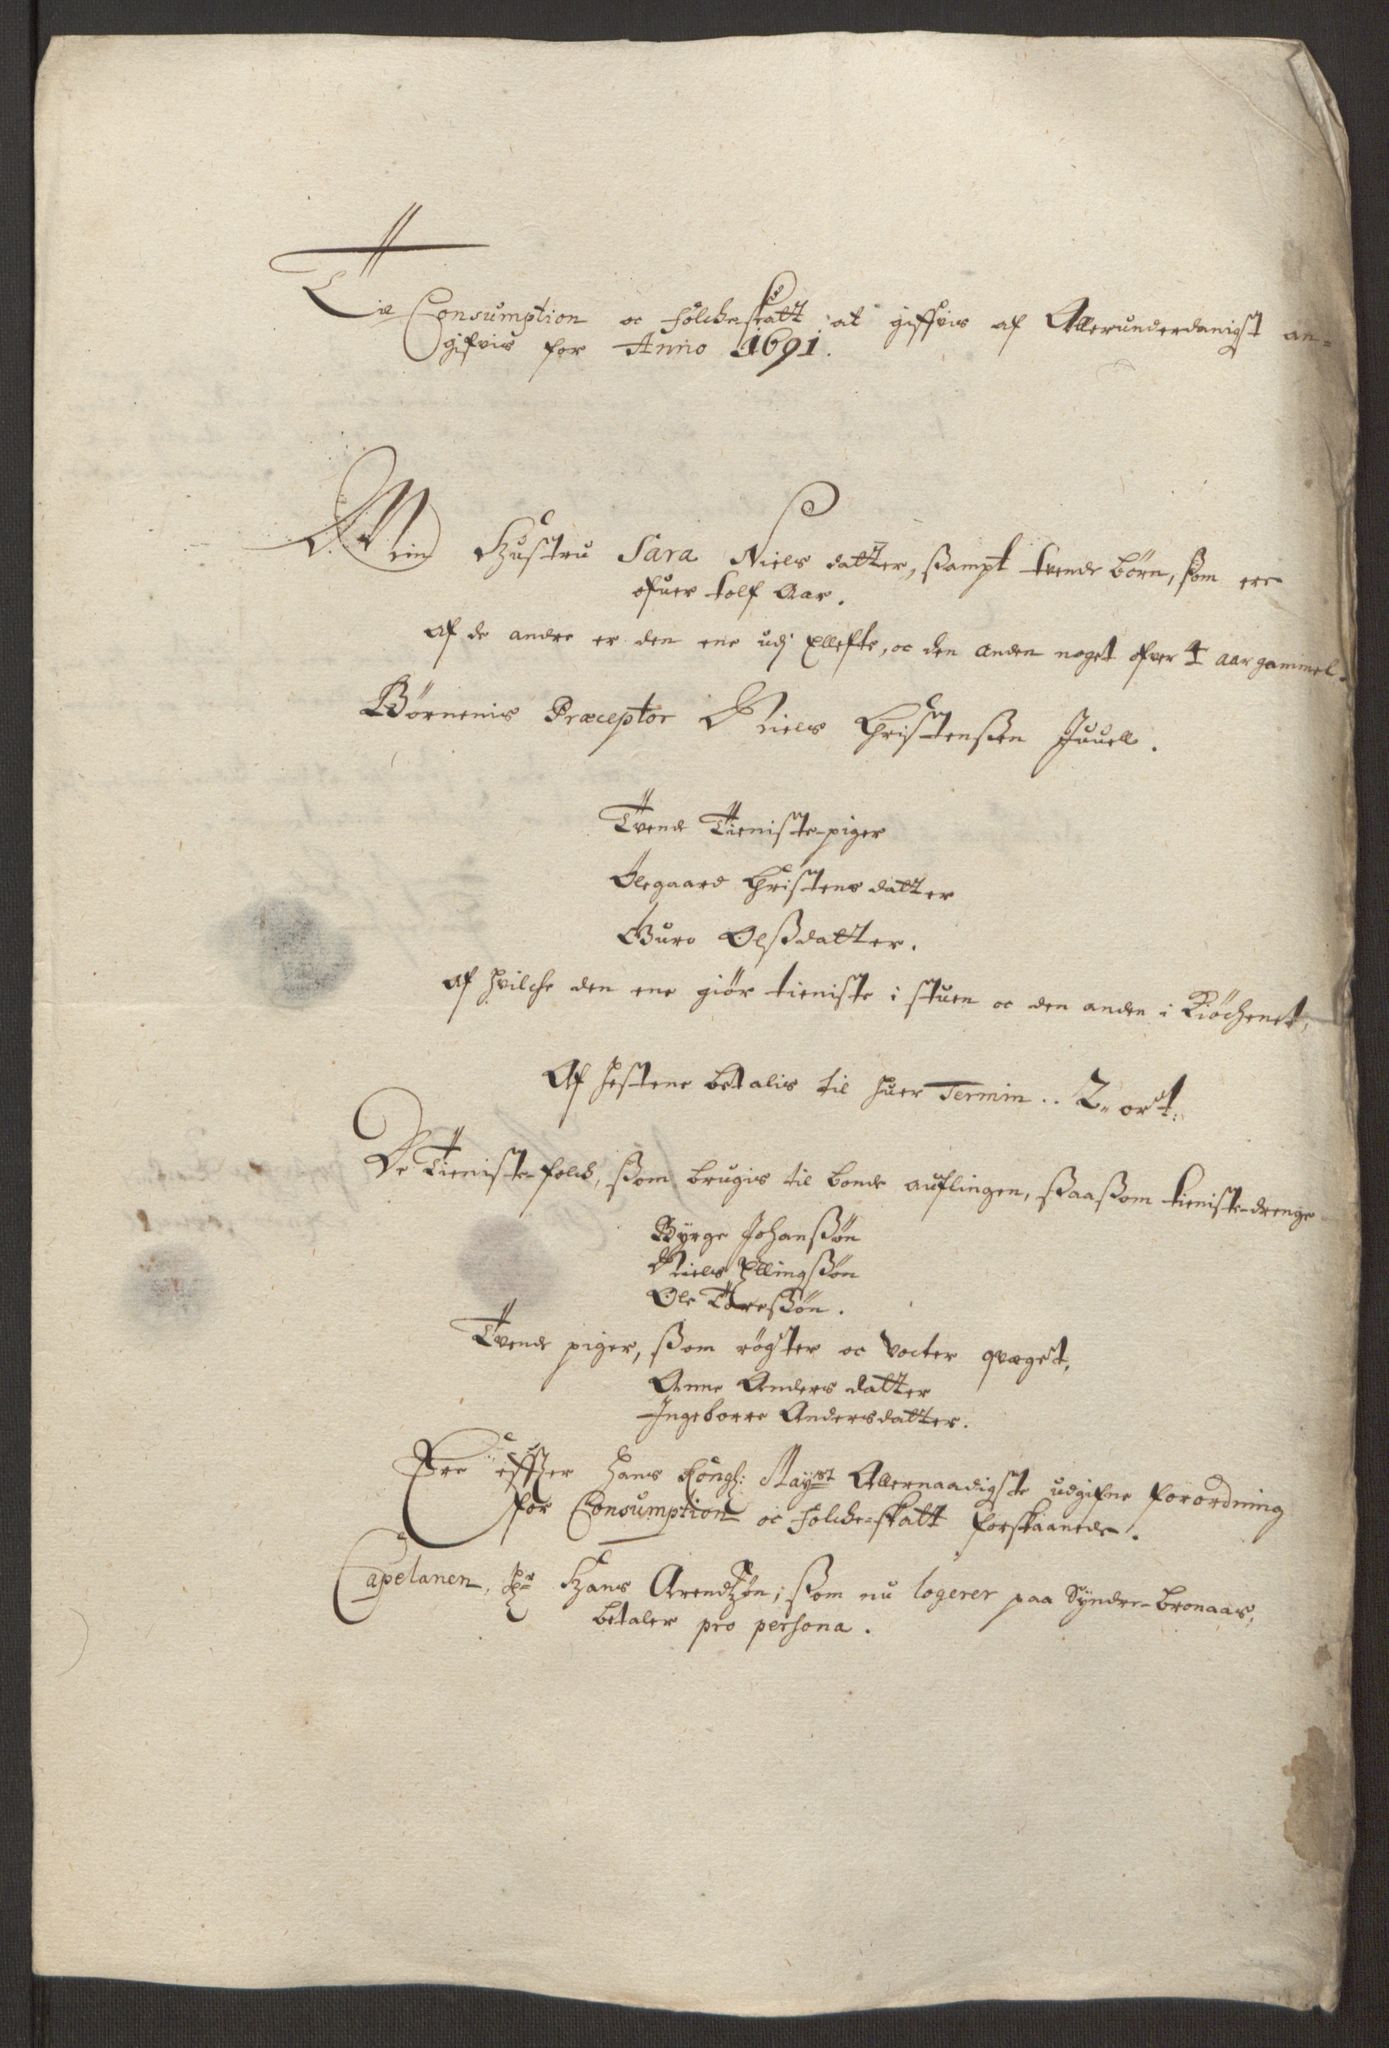 Til Consumption oc folche-skatt at gifvis af Allerunderdanigst an=
gifvis for Anno 1691.
Min Hustru Sara Niels datter, sampt tvende børn, som ere
ofver tolf Aar.
Af de andre er den ene udj Ellefte, oc den anden noget ofver 4 aar gammel.
Børnenis Præceptor Niels Christenßen Juuell.
Tvende Tieniste-piger
Olegaard Christens datter
Guro Olßdatter.
Af hvilche den ene giør tieniste i stuen oc den anden i Kiøchenet,
Af hestene betalis til huer Termin .. 2. ort.
De Tieniste-folck, ßom brugis til bonde auflingen, ßaaßom tieniste-drenge
Byrge Johanßøn
Niels Ellingßøn
Ole Toreßøn.
Tvende piger, ßom røgter oc vocter qvæget,
Anne Anders datter
Ingeborre Andersdatter.
Ere effter Hans Kongl: Mayst Allernaadigste udgifne forordning
for Consumption oc folche-skatt forskaanede.
Capelanen, Hr Hans Arendzøn, ßom nu logerer paa Syndre-Bronaas,
betaler pro persona.